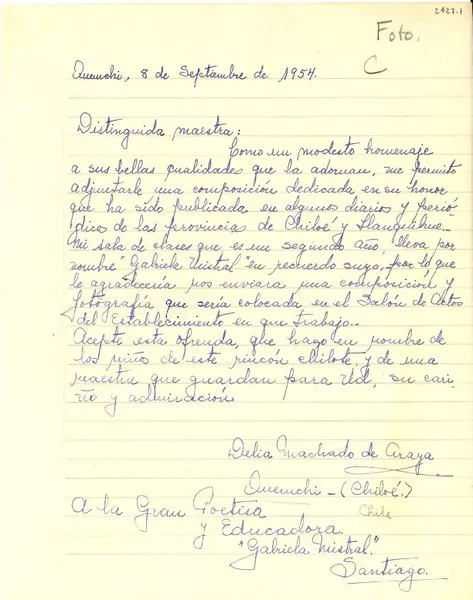 2427-1
Foto.
C
Quemchi, 8 de Septiembre de 1954.
Distinguida maestra:
Como un modesto homenaje
a sus bellas cualidades que la adornan, me permito
adjuntarle una composición dedicada en su honor
que ha sido publicada en algunos diarios y perió
dicos de las provincias de Chiloé y Llanquihue.
Mi sala de clases que es un segundo año, lleva por
nombre "Gabriela Mistral" en recuerdo suyo, por lo que
le agradecería nos enviara una composición y
fotografía que sería colocada en el Salón de Actos
del Establecimiento en que trabajo..
Acepte esta ofrenda, que hago en nombre de
los niños de este rincón chilote, y de una
maestra que guardan para Ud, su cari
ño y admiración.
Delia Machado de Araya
Quemchi - (Chiloé.)
Chile
A la Gran Poetisa
y Educadora
"Gabriela Mistral."
Santiago.